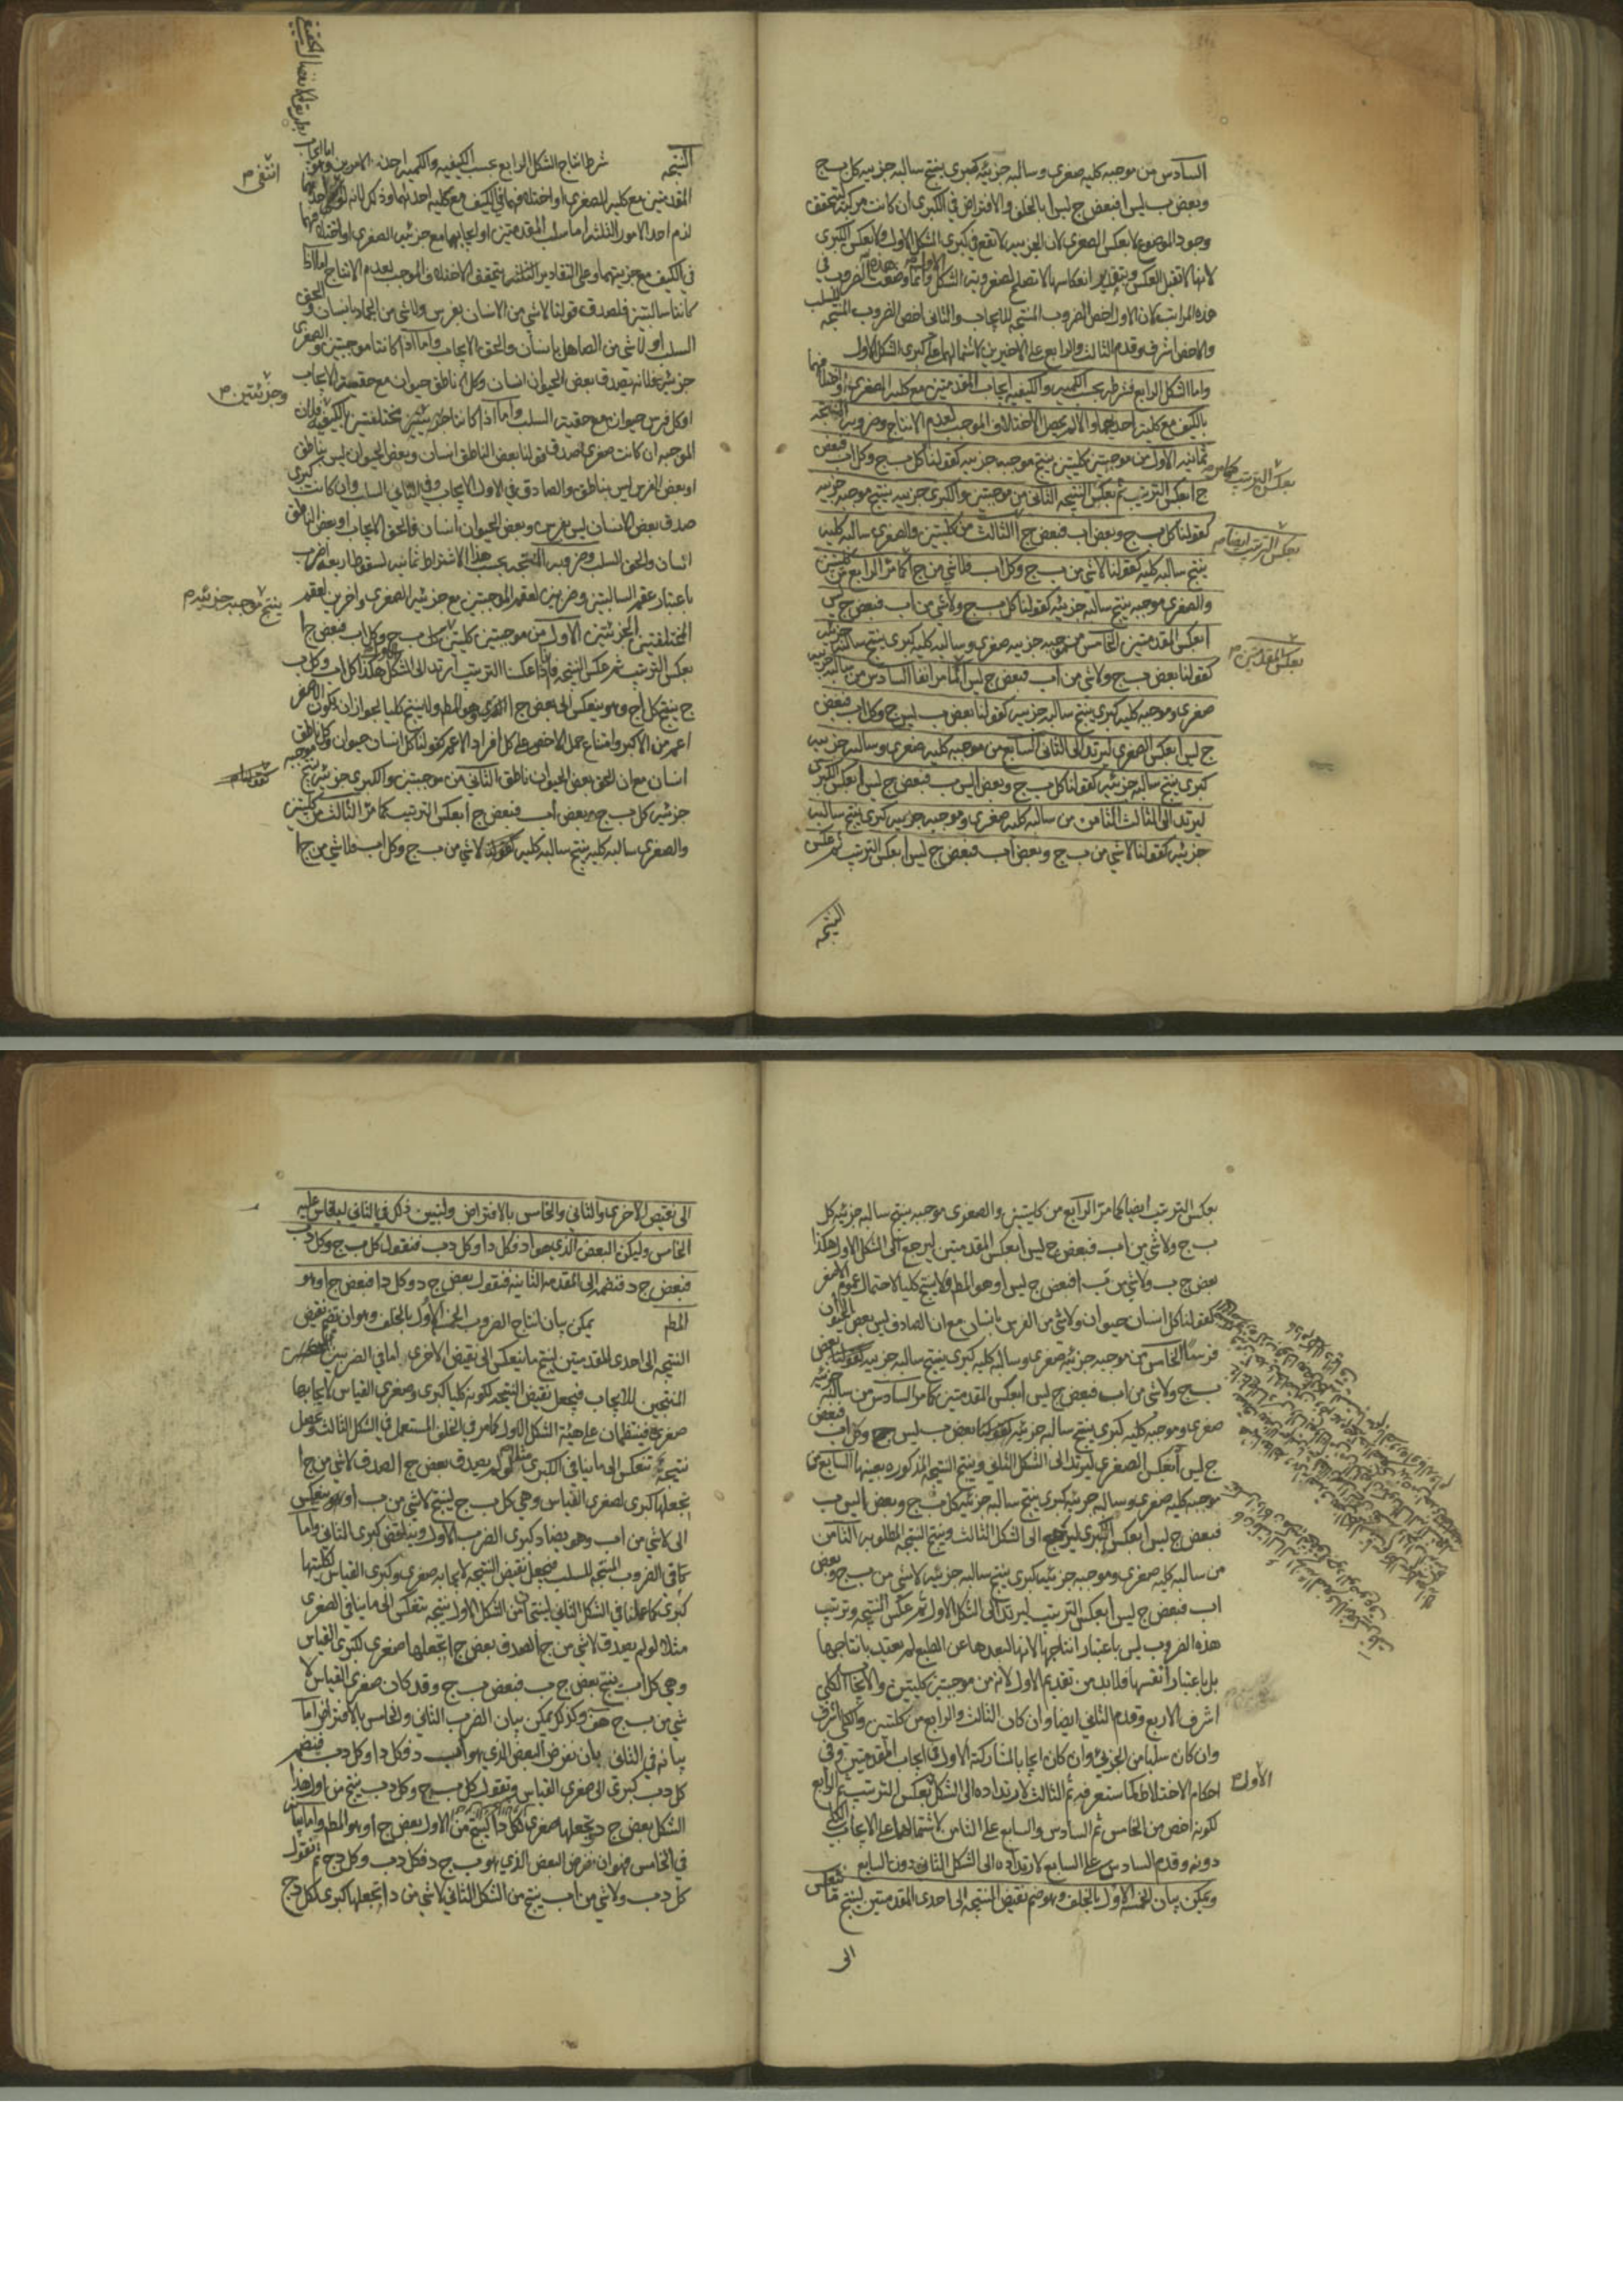 السادس من موجبه كليه صغرى وسالبه جزئيه كبرى ينتج سالبه جزييه كل ب ج
وبعض ب ليس ا فبعض ج ليس ا بالخلف والافتراض في الكبرى ان كانت مركبة ليتحقق
وجود الموضوع لا بعكس الصغرى لان الجزييه لا تقع في كبرى الشكل الاول ولا بعكس الكبرى
لانها لا تقبل العكس وبتقدير انعكاسها لا تصلح لصغرويه الشكل الاول وانما وضعت هذه الضروب في
هذه المراتب لان الاول اخص الضروب المنتجه للايجاب والثاني اخص الضروب المنتجه للسلب
والاخص اشرف وقدم الثالث والرابع على الاخيرين لاشتمالهما على كبرى الشكل الاول
واما الشكل الرابع فشرطه بحسب الكميه والكيفيه ايجاب المقدمتين مع كليه الصغرى او اختلافهما
بالكيف مع كليه احديهما والا لم يحصل الاختلاف الموجب لعدم الانتاج وضروبه المنتجه
ثمانيه الاول من موجبتين كليتين ينتج موجبه جزييه كقولنا كل ب ج وكل ا ب فبعض
ج ا بعكس الترتيب ثم بعكس النتيجه الثاني من موجبتين والكبرى جزييه ينتج موجبه جزييه
كقولنا كل ب ج وبعض ا ب فبعض ج ا الثالث من كليتين والصغرى سالبه كليه
ينتج سالبه كليه كقولنا لا شي من ب ج وكل ا ب فلا شي من ج ا كما مر الرابع من كليتين
والصغرى موجبه ينتج سالبه جزئيه كقولنا كل ب ج ولا شي من ا ب فبعض ج ليس
ا بعكس المقدمتين الخامس من موجبه جزييه صغرى وسالبه كليه كبرى ينتج سالبه جزئيه
كقولنا بعض ب ج ولا شي من ا ب فبعض ج ليس ا كما مر انفا السادس من سالبه جزييه
صغرى وموجبه كليه كبرى ينتج سالبه جزييه كقولنا بعض ب ليس ج وكل ا ب فبعض
ج ليس ا بعكس الصغرى ليرتد الى الثاني السابع من موجبه كليه صغرى وسالبه جزييه
كبرى ينتج سالبه جزئيه كقولنا كل ب ج وبعض ا ليس ب فبعض ج ليس ا بعكس الكبرى
ليرتد الى الثالث الثامن من سالبه كليه صغرى وموجبه جزييه كبرى ينتج سالبه
جزئيه كقولنا لا شي من ب ج وبعض ا ب فبعض ج ليس ا بعكس الترتيب ثم عكس
النتيجه
بعكس الترتيب كما مر
بعكس الترتيب ايضا
بعكس المقدمتين
النتيجه شرط انتاج الشكل الرابع بحسب الكيفيه والكميه احد الامرين وهو اما ايجاب
المقدمتين مع كليه الصغرى او اختلافهما في الكيف مع كليه احدهما وذلك لانه لو
لزم احد الامور الثلثه اما سلب المقدمتين او ايجابهما مع جزئيه الصغرى او اختلافهما
في الكيف مع جزئيتهما وعلى التقادير الثلثه يتحقق الاختلاف الموجب لعدم الانتاج اما اذا
كانتا سالبتين فلصدق قولنا لا شي من الانسان بفرس ولا شي من الحمار بانسان والحق
السلب او لا شي من الصاهل بانسان والحق الايجاب واما اذا كانتا موجبتين والصغرى
جزئيه فلانه يصدق بعض الحيوان انسان وكل ناطق حيوان مع حقيه الايجاب
او كل فرس حيوان مع حقيه السلب واما اذا كانتا جزئيتين مختلفتين بالكيفيه فلان
الموجبه ان كانت صغرى صدق قولنا بعض الناطق انسان وبعض الحيوان ليس بناطق
او بعض الفرس ليس بناطق والصادق في الاول الايجاب وفي الثاني السلب وان كانت كبرى
صدق بعض الانسان ليس بفرس وبعض الحيوان انسان والحق الايجاب او بعض الناطق
انسان والحق السلب وضروبه المنتجه بحسب هذا الاشتراط ثمانيه لسقوط اربعه اضرب
باعتبار عقم السالبتين وضربين لعقم الموجبتين مع جزئيه الصغرى واخرين لعقم
المختلفتين الجزئيتين الاول من موجبتين كليتين كل ب ج وكل ا ب فبعض ج ا
بعكس الترتيب ثم عكس النتيجه فانا اذا عكسنا الترتيب ارتد الى الشكل الاول هكذا كل ا ب وكل ب
ج ينتج كل ا ج وهو ينعكس الى بعض ج ا وهو المط ولا ينتج كليا لجواز ان يكون الاصغر
اعم من الاكبر وامتناع حمل الاخص على كل افراد الاعم كقولنا كل انسان حيوان وكل ناطق
انسان مع ان الحق بعض الحيوان ناطق الثاني من موجبتين والكبرى جزئيه ينتج موجبه
جزئيه كل ب ج وبعض ا ب فبعض ج ا بعكس الترتيب كما مر الثالث من كليتين
والصغرى سالبه كليه ينتج سالبه كليه كقولنا لا شي من ب ج وكل ا ب فلا شي من ج ا
انتفى
وجزئيتين
ينتج موجبه جزئيه
بعكس الترتيب ايضا كما مر الرابع من كليتين والصغرى موجبه ينتج سالبه جزئيه كل
ب ج ولا شي من ا ب فبعض ج ليس ا بعكس المقدمتين ليرجع الى الشكل الاول هكذا
بعض ج ب ولا شي من ب ا فبعض ج ليس ا وهو المط ولا ينتج كليا لاحتمال عموم الاصغر
كقولنا كل انسان حيوان ولا شي من الفرس بانسان مع ان الصادق ليس بعض الحيوان
فرسا الخامس من موجبه جزئيه صغرى وسالبه كليه كبرى ينتج سالبه جزييه كقولنا بعض
ب ج ولا شي من ا ب فبعض ج ليس ا بعكس المقدمتين كما مر السادس من سالبه جزئيه
صغرى وموجبه كليه كبرى ينتج سالبه جزئيه كقولنا بعض ب ليس ج وكل ا ب فبعض
ج ليس ا بعكس الصغرى ليرتد الى الشكل الثاني وينتج النتيجه المذكوره بعينها السابع من
موجبه كليه صغرى وسالبه جزئيه كبرى ينتج سالبه جزئيه كل ب ج وبعض ا ليس ب
فبعض ج ليس ا بعكس الكبرى ليرجع الى الشكل الثالث وينتج النتيجه المطلوبه الثامن
من سالبه كليه صغرى وموجبه جزئيه كبرى ينتج سالبه جزئيه لا شي من ب ج وبعض
ا ب فبعض ج ليس ا بعكس الترتيب ليرتد الى الشكل الاول ثم عكس النتيجه وترتيب
هذه الضروب ليس باعتبار انتاجها لانها لبعدها عن الطبع لم يعتد بانتاجها
بل باعتبار انفسها فلا بد من تقديم الاول لانه من موجبتين كليتين والايجاب الكلي
اشرف الاربع وقدم الثاني ايضا وان كان الثالث والرابع من كليتين والكلي اشرف
وان كان سلبا من الجزئي وان كان ايجابا لمشاركته الاول في ايجاب المقدمتين وفي
احكام الاختلاط كما ستعرفه ثم الثالث لارتداده الى الشكل بعكس الترتيب ثم الرابع
لكونه اخص من الخامس ثم السادس والسابع على الثامن لاشتمالهما على الايجاب الكلي
دونه وقدم السادس على السابع لارتداده الى الشكل الثاني دون السابع
ويمكن بيان الخمسه الاول بالخلف وهو ضم نقيض النتيجه الى احدى المقدمتين لينتج ما ينعكس
الى
الاول
الى نقيض الاخرى والثاني والخامس بالافتراض ولنبين ذلك في الثاني ليقاس عليه
الخامس وليكن البعض الذي هو ا د فكل د ا وكل د ب فنقول كل ب ج وكل د ب
فبعض ج د فنضمه الى المقدمه الثانيه فنقول بعض ج د وكل د ا فبعض ج ا وهو
المط يمكن بيان انتاج الضروب الخمسه الاول بالخلف وهو ان نضم نقيض
النتيجه الى احدى المقدمتين لينتج ما ينعكس الى نقيض الاخرى اما في الضربين
المنتجين للايجاب فيجعل نقيض النتيجه لكونه كليا كبرى وصغرى القياس لايجابها
صغرى فينتظمان على هيئة الشكل الاول كما مر في الخلف المستعمل في الشكل الثالث وتحصل
نتيجه تنعكس الى ما ينافي الكبرى مثلا لو لم يصدق بعض ج ا لصدق لا شي من ج ا
نجعلها كبرى لصغرى القياس وهي كل ب ج لينتج لا شي من ب ا وهو ينعكس
الى لا شي من ا ب وهو يضاد كبرى الضرب الاول ويناقض كبرى الثاني واما
باقي الضروب المنتجه للسلب فيجعل نقيض النتيجه لايجابه صغرى وكبرى القياس لكليتها
كبرى كما عملنا في الشكل الثاني لينتج من الشكل الاول نتيجه تنعكس الى ما ينافي الصغرى
مثلا لو لم يصدق لا شي من ج ا لصدق بعض ج ا نجعلها صغرى لكبرى القياس
وهي كل ا ب ينتج بعض ج ب فبعض ب ج وقد كان صغرى القياس لا
شي من ب ج هف وكذلك يمكن بيان الضرب الثاني والخامس بالافتراض اما
بيانه في الثاني بان نفرض البعض الذي هو ا ب د فكل د ا وكل د ب فنضم
كل د ب كبرى الى صغرى القياس ونقول كل ب ج وكل د ب ينتج من اول هذا
الشكل بعض ج د ونجعلها صغرى لكل د ا لينتج من الاول بعض ج ا وهو المط واما بيانه
في الخامس فهو ان نفرض البعض الذي هو ب ج د فكل د ب وكل د ج ثم نقول
كل د ب ولا شي من ا ب ينتج من الشكل الثاني لا شي من د ا نجعلها كبرى لكل د ج